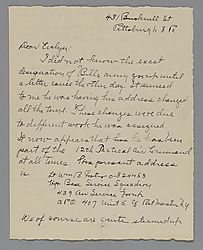 431 Bucknell St
Pittsburgh 8 Pa
Dear Evelyn:
I did not know the exact
designation of Bill's army group until
a letter came the other day. It seemed
to me he was having his address changed
all the time. These changes were due
to different work he was assigned.
It now appears that he has been
part of the 12th Tactical Air Command
at all times. His present address
is Lt Wm B
Base Service Squadron
439 Air Service Group
A.P.O. 407 Unit 5 % Postmaster N.Y
We of course are quite steamed up